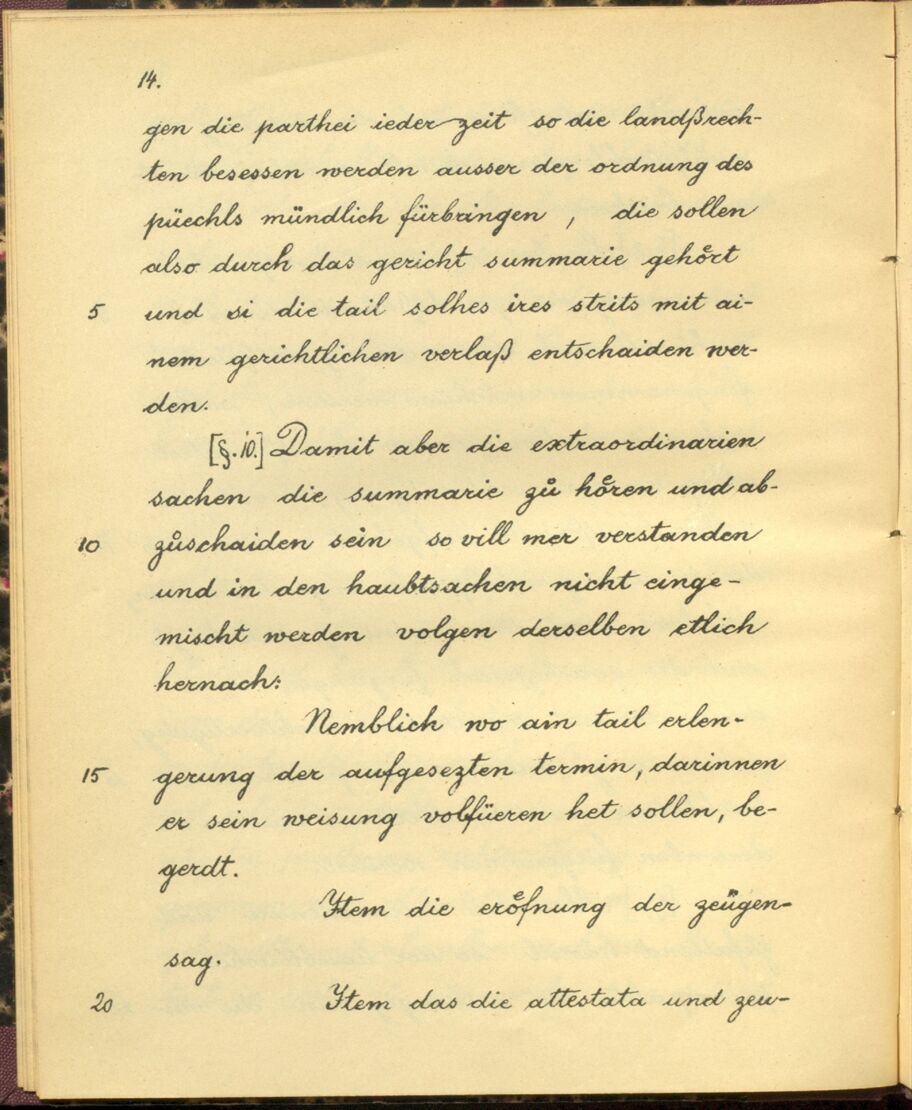 14.
gen die parthei ieder zeit so die landßrech-
ten besessen werden ausser der ordnung des
püechls mündlich fürbringen, die sollen
also durch das gericht summarie gehört
5 und si die tail solhes ires strits mit ai-
nem gerichtlichen verlaß entschaiden wer-
den.
[§. 10.] Damit aber die extraordinarien
sachen die summarie zů hören und ab-
10 zůschaiden sein so vill mer verstanden
und in den haubtsachen nicht einge-
mischt werden volgen derselben etlich
hernach:
Nemblich wo ain tail erlen-
15 gerung der aufgesezten termin, darinnen
er sein weisung volfüeren het sollen, be-
gerdt.
Ytem die eröfnung der zeügen-
sag.
20 Ytem das die attestata und zeu-